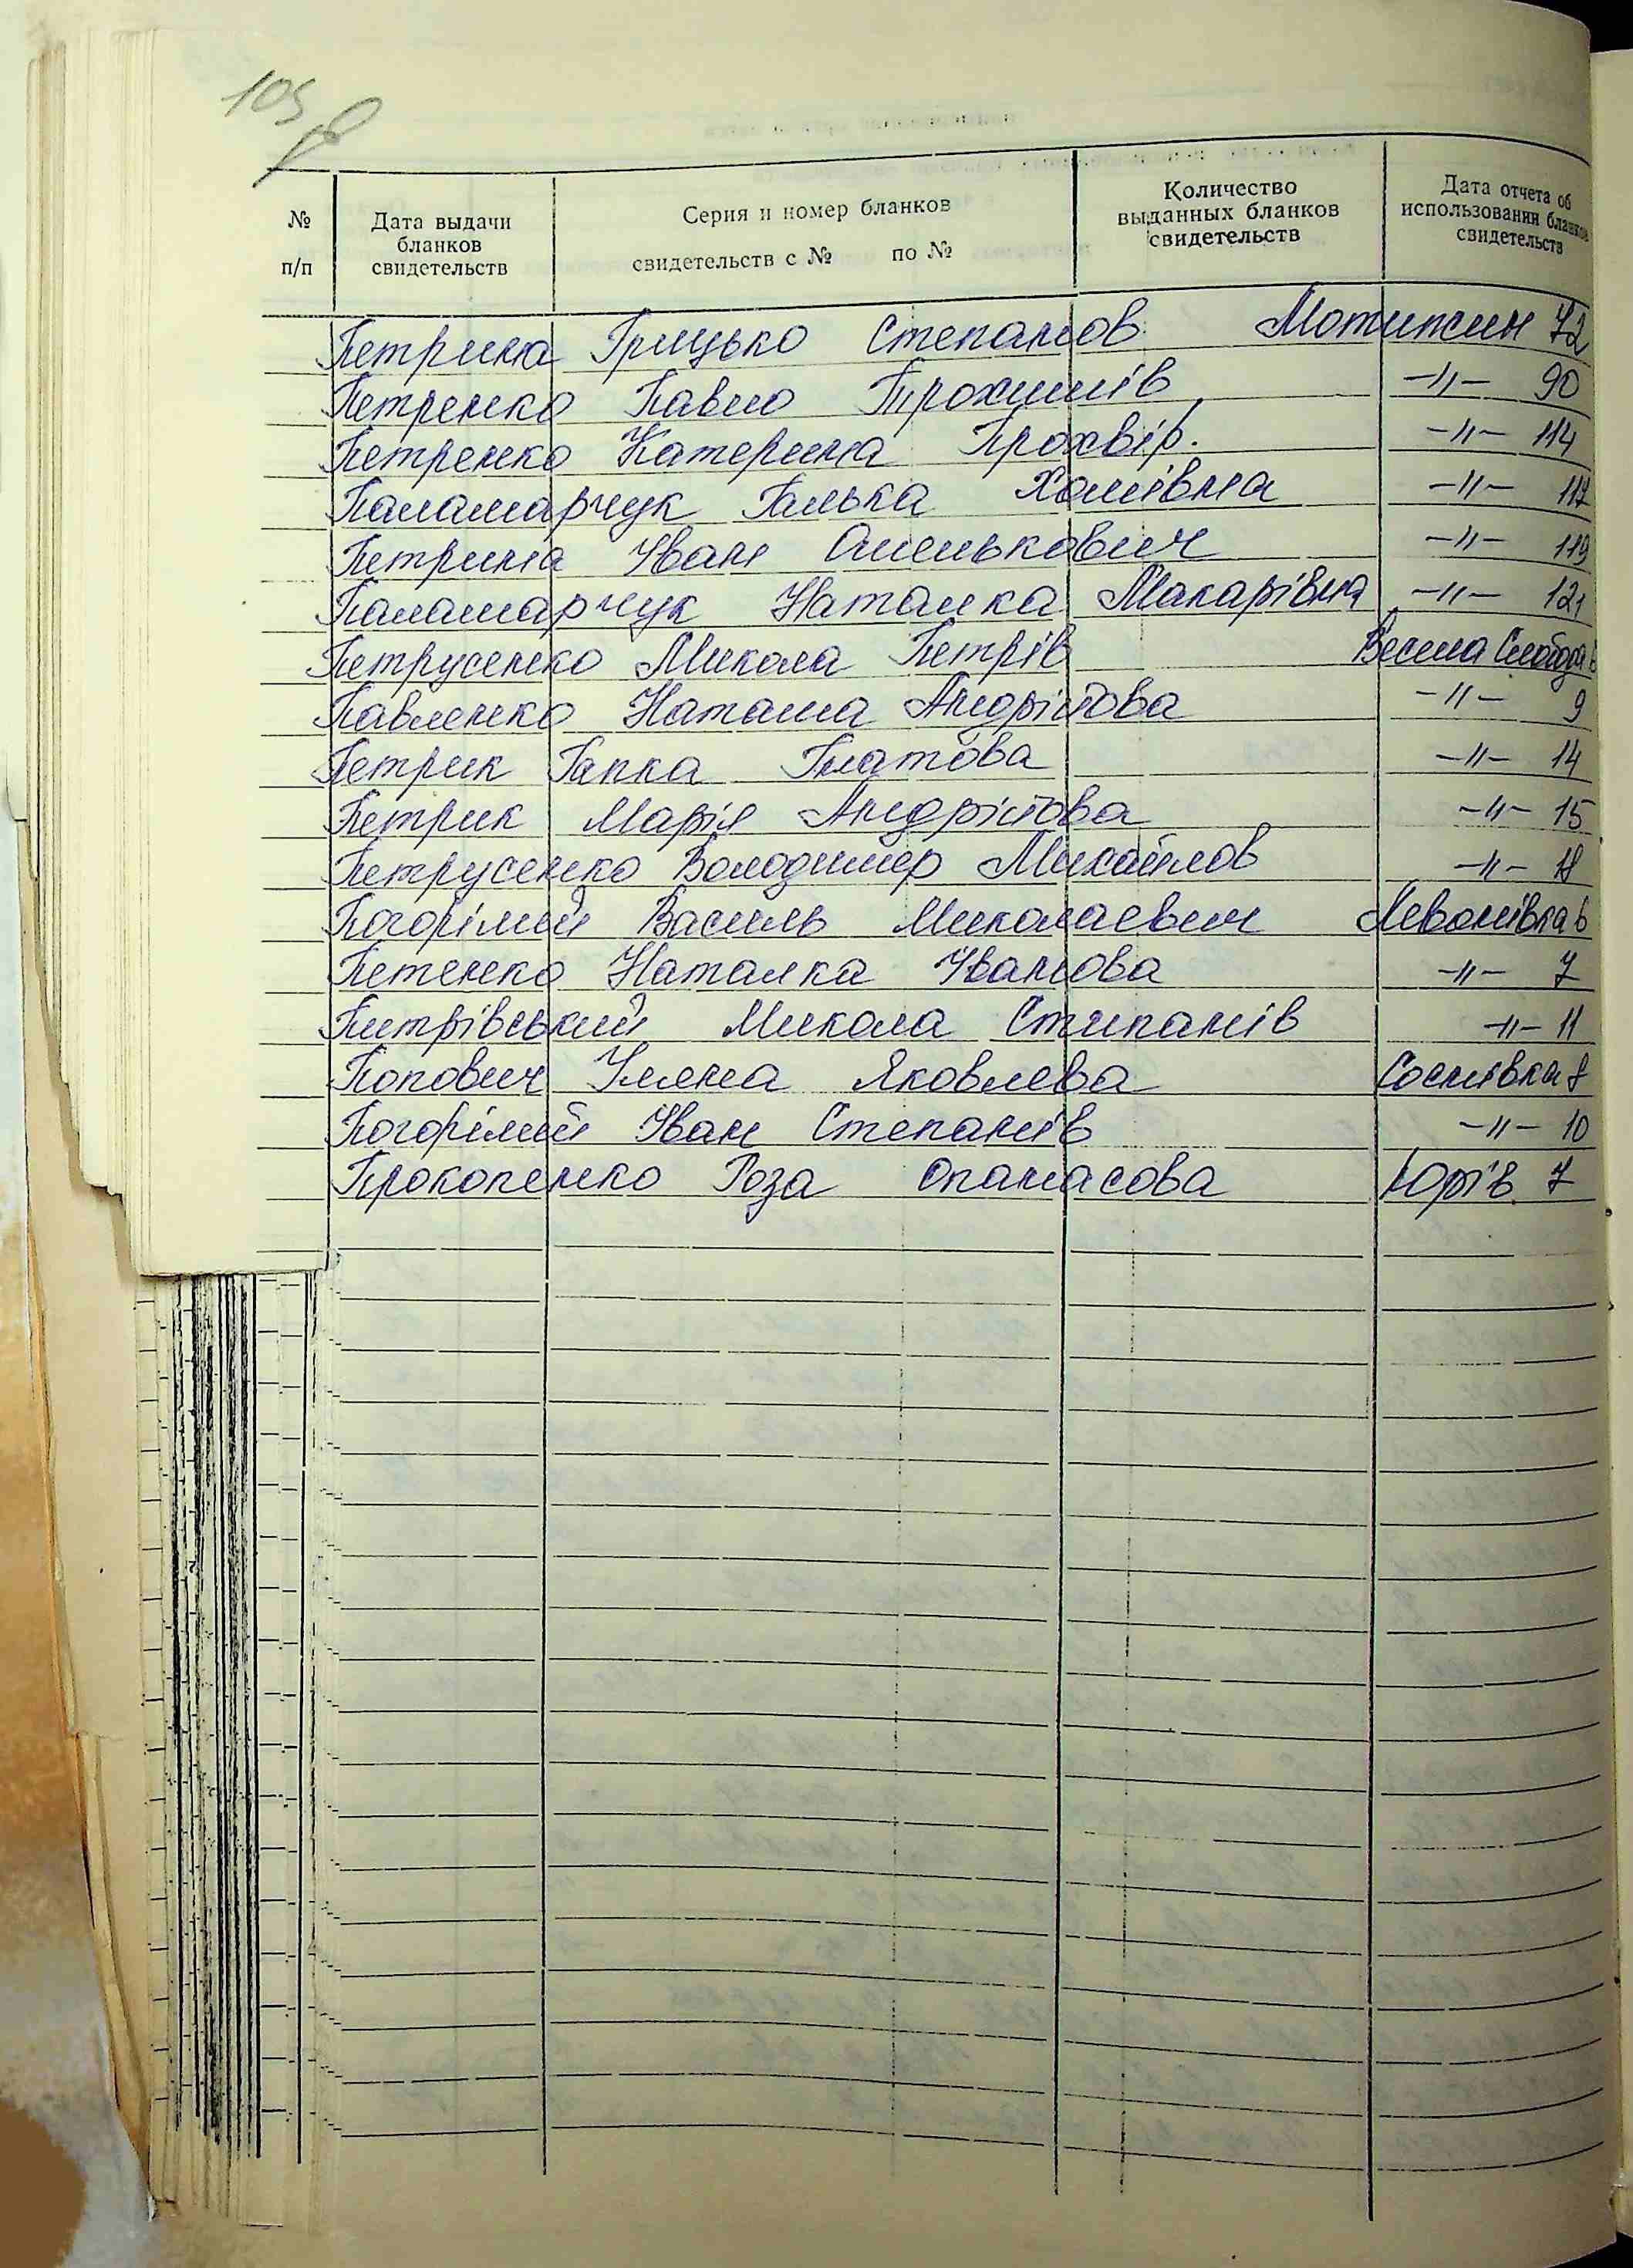 105
№ п/п
Дата выдачи бланков свидетельств
Серия и номер бланков свидетельств с № по №
Количество выданных бланков свидетельств
Дата отчета об использовании бланков свидетельств
Петрина Грицько Степанов Мотижин 72
Петренко Павло Трохимів -"- 90
Петренко Катерина Прохвір. -"- 114
Паламарчук Галька Хомівна -"- 117
Петрина Іван Омелькович -"- 119
Паламарчук Наталка Макарівна -"- 121
Петрусенко Микола Петрів Весела Слобода 6
Павленко Наташа Андрійова -"- 9
Петрик Гапка Гнатова -"- 14
Петрик Марія Андрійова -"- 15
Петрусенко Володимер Михайлов -"- 18
Погорілий Василь Миколаевич Левонівка 6
Петенко Наталка Іванова -"- 7
Питрівський Микола Стипанів -"- 11
Попович Уляна Яковлева Соснівка 8
Погорілий Іван Степанів -"- 10
Прокопенко Роза Опанасова Юрів 7